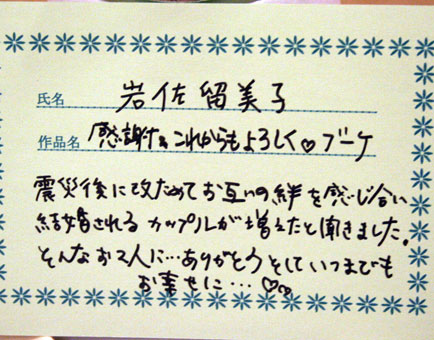 氏名 岩佐留美子
作品名 感謝&これからもよろしく♡ブーケ
震災後に改ためてお互いの絆を感じ合い
結婚されるカップルが増えたと聞きました。
そんなお2人に…ありがとうそしていつまでも
お幸せに…♡♡